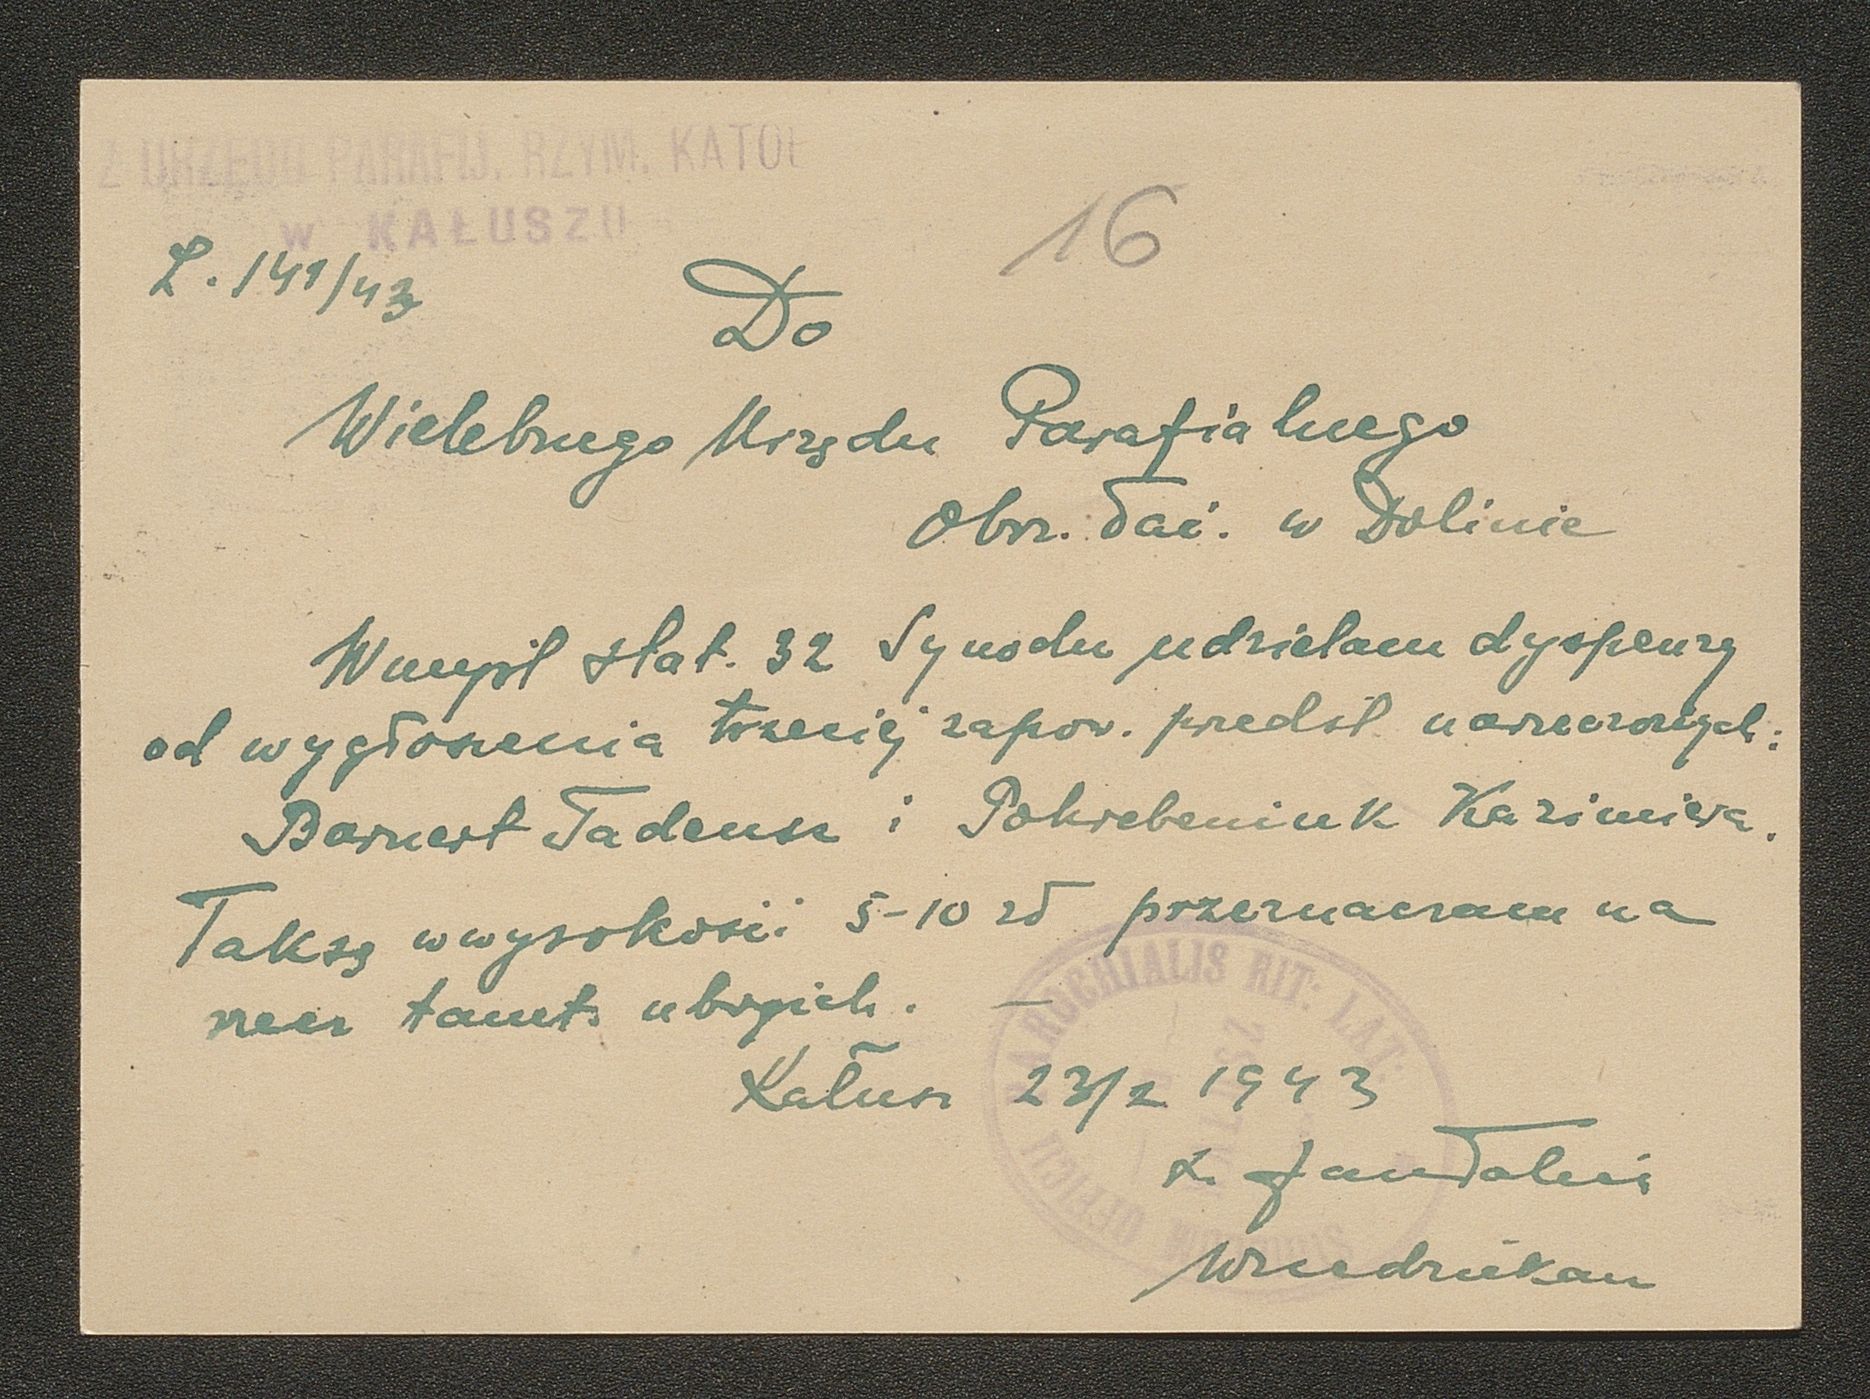 Z URZĘDU PARAFIJ. RZYM. KATOL
W KAŁUSZU
L. 141/43
16
Do
Wielebnego Urzędu Parafialnego
Obrz. łać. w Dolinie
W myśl stat. 32 Synodu udzielam dyspenzy
od wygłoszenia trzeciej zapow. przedśl narzeczonych:
Barnert Tadeusz i Pokrebeniuk Kazimiera.
Taksę w wysokości 5-10 zł przeznaczam na
rzecz tamt. ubogich. —
Kałusz 23/2 1943
SIGILLUM OFFICII PAROCHIALIS RIT: LAT.
X. Jan
Wicedziekan